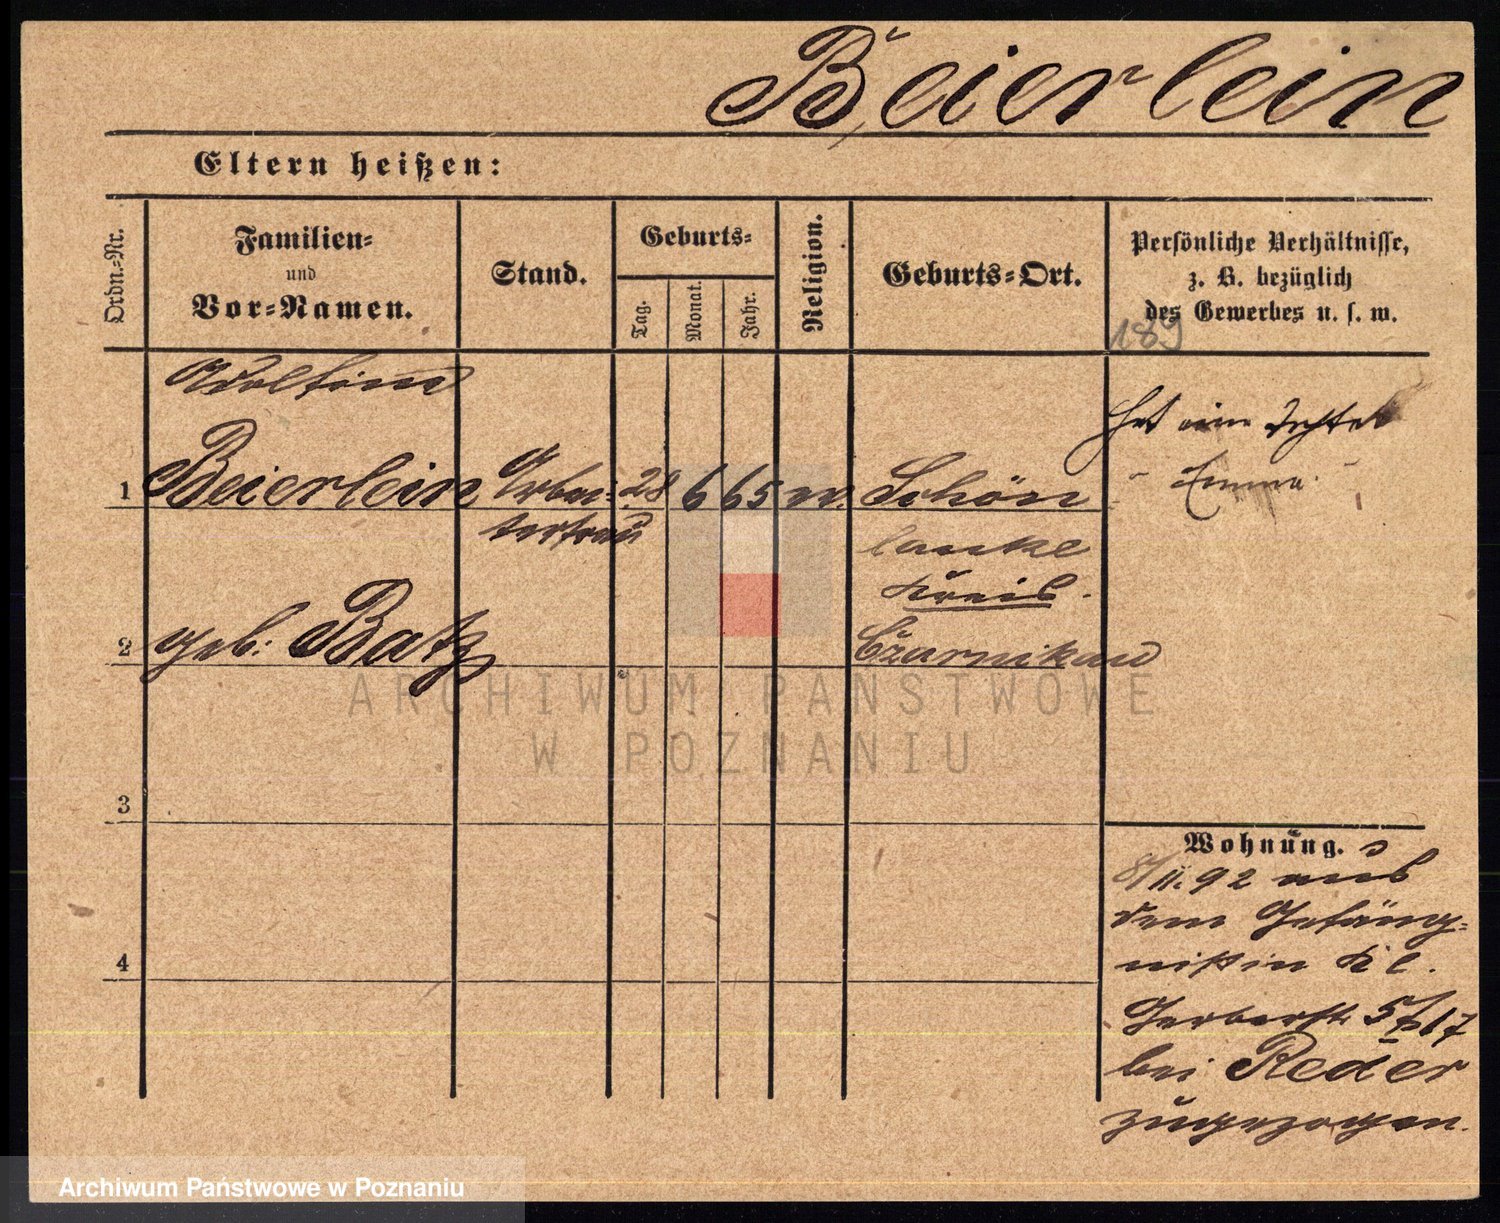 Beierlein
Eltern heißen:
Ordn.-Nr.
Familien-
und
Vor-Namen.
Stand.
Geburts-
Tag.
Monat.
Jahr.
Religion.
Geburts-Ort.
Persönliche Verhältnisse,
z. B. bezüglich
des Gewerbes u. s. w.
189
hat eine Tochter
Emma
1 Beierlein Arbei- 28 6 65 Schön
terfrau
lanke
Kreis
2 geb. Batz Czarnikau
3
4
Wohnung.
8/11.92 aus
dem Gefäng-
niß in Kl.
Gerberstr. 5/7
bei Reder
zugezogen.
ARCHIWUM PAŃSTWOWE
W POZNANIU
Archiwum Państwowe w Poznaniu